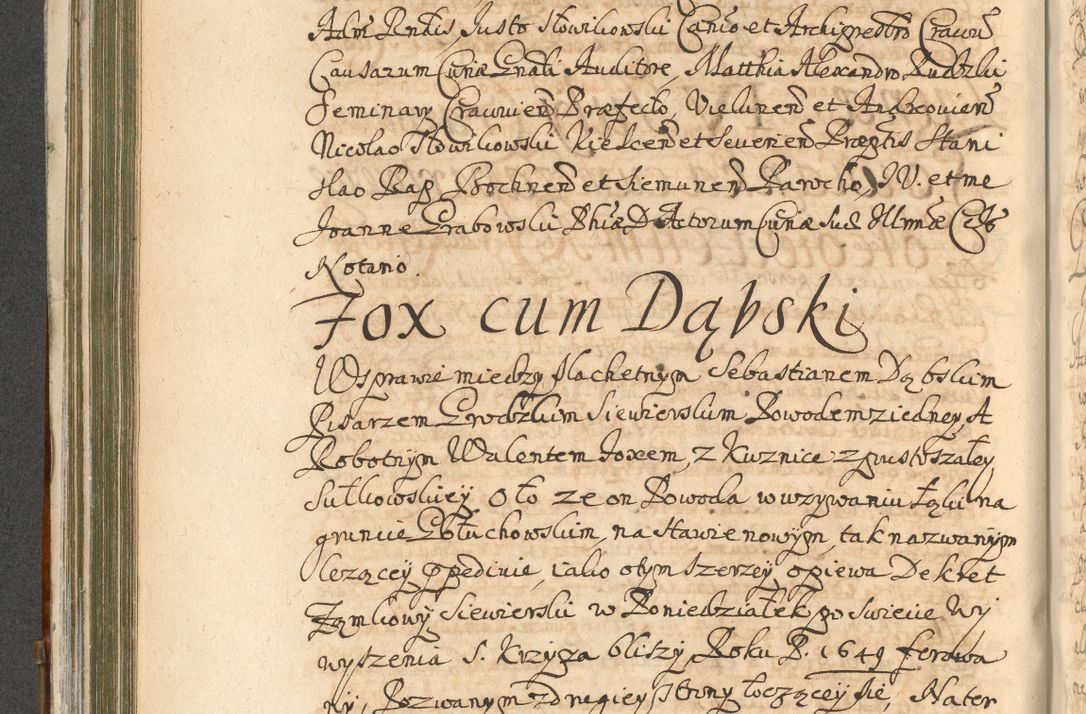 Adm Rndis, Justo Słowikowski Canco et Archipresbro Cracou
Causarum Curiæ Gnali Auditore, Matthia Alexandro Rudzki
Seminary Cracouien Præfecto, Vielunen et Andreouien
Nicolao Słowikowski Kielcen et Seuerien Præptis Stani
slao Bochnen et Siemunen Parocho, JV. et me
Joanne Grabowski Actorum Curiæ Suæ Illmæ Cels
Notario.
Fox cum Dąbski
W sprawie miedzy slachetnym Sebastianem Dąbskim
Pisarzem Grodzkim Siewierskim Powodem z iedney, A
Robotnym Walentem Foxem, z Kuznice z pustoszałey
Sułkowskiey o to ze on Powoda w uzywaniu łąki na
gruncie Głuchowskim, na Stawie nowym, tak nazwanym
lezącey ppedivie, iako o tym szerzey, opiewa Dekret
Zamkowy Siewierski w Poniedziałek po swiecie Wy
wyszenia S. Krzyza bliszy Roku P. 1649 ferowa
ny, Pozwanym z drugiey strony toczącey się, Nater